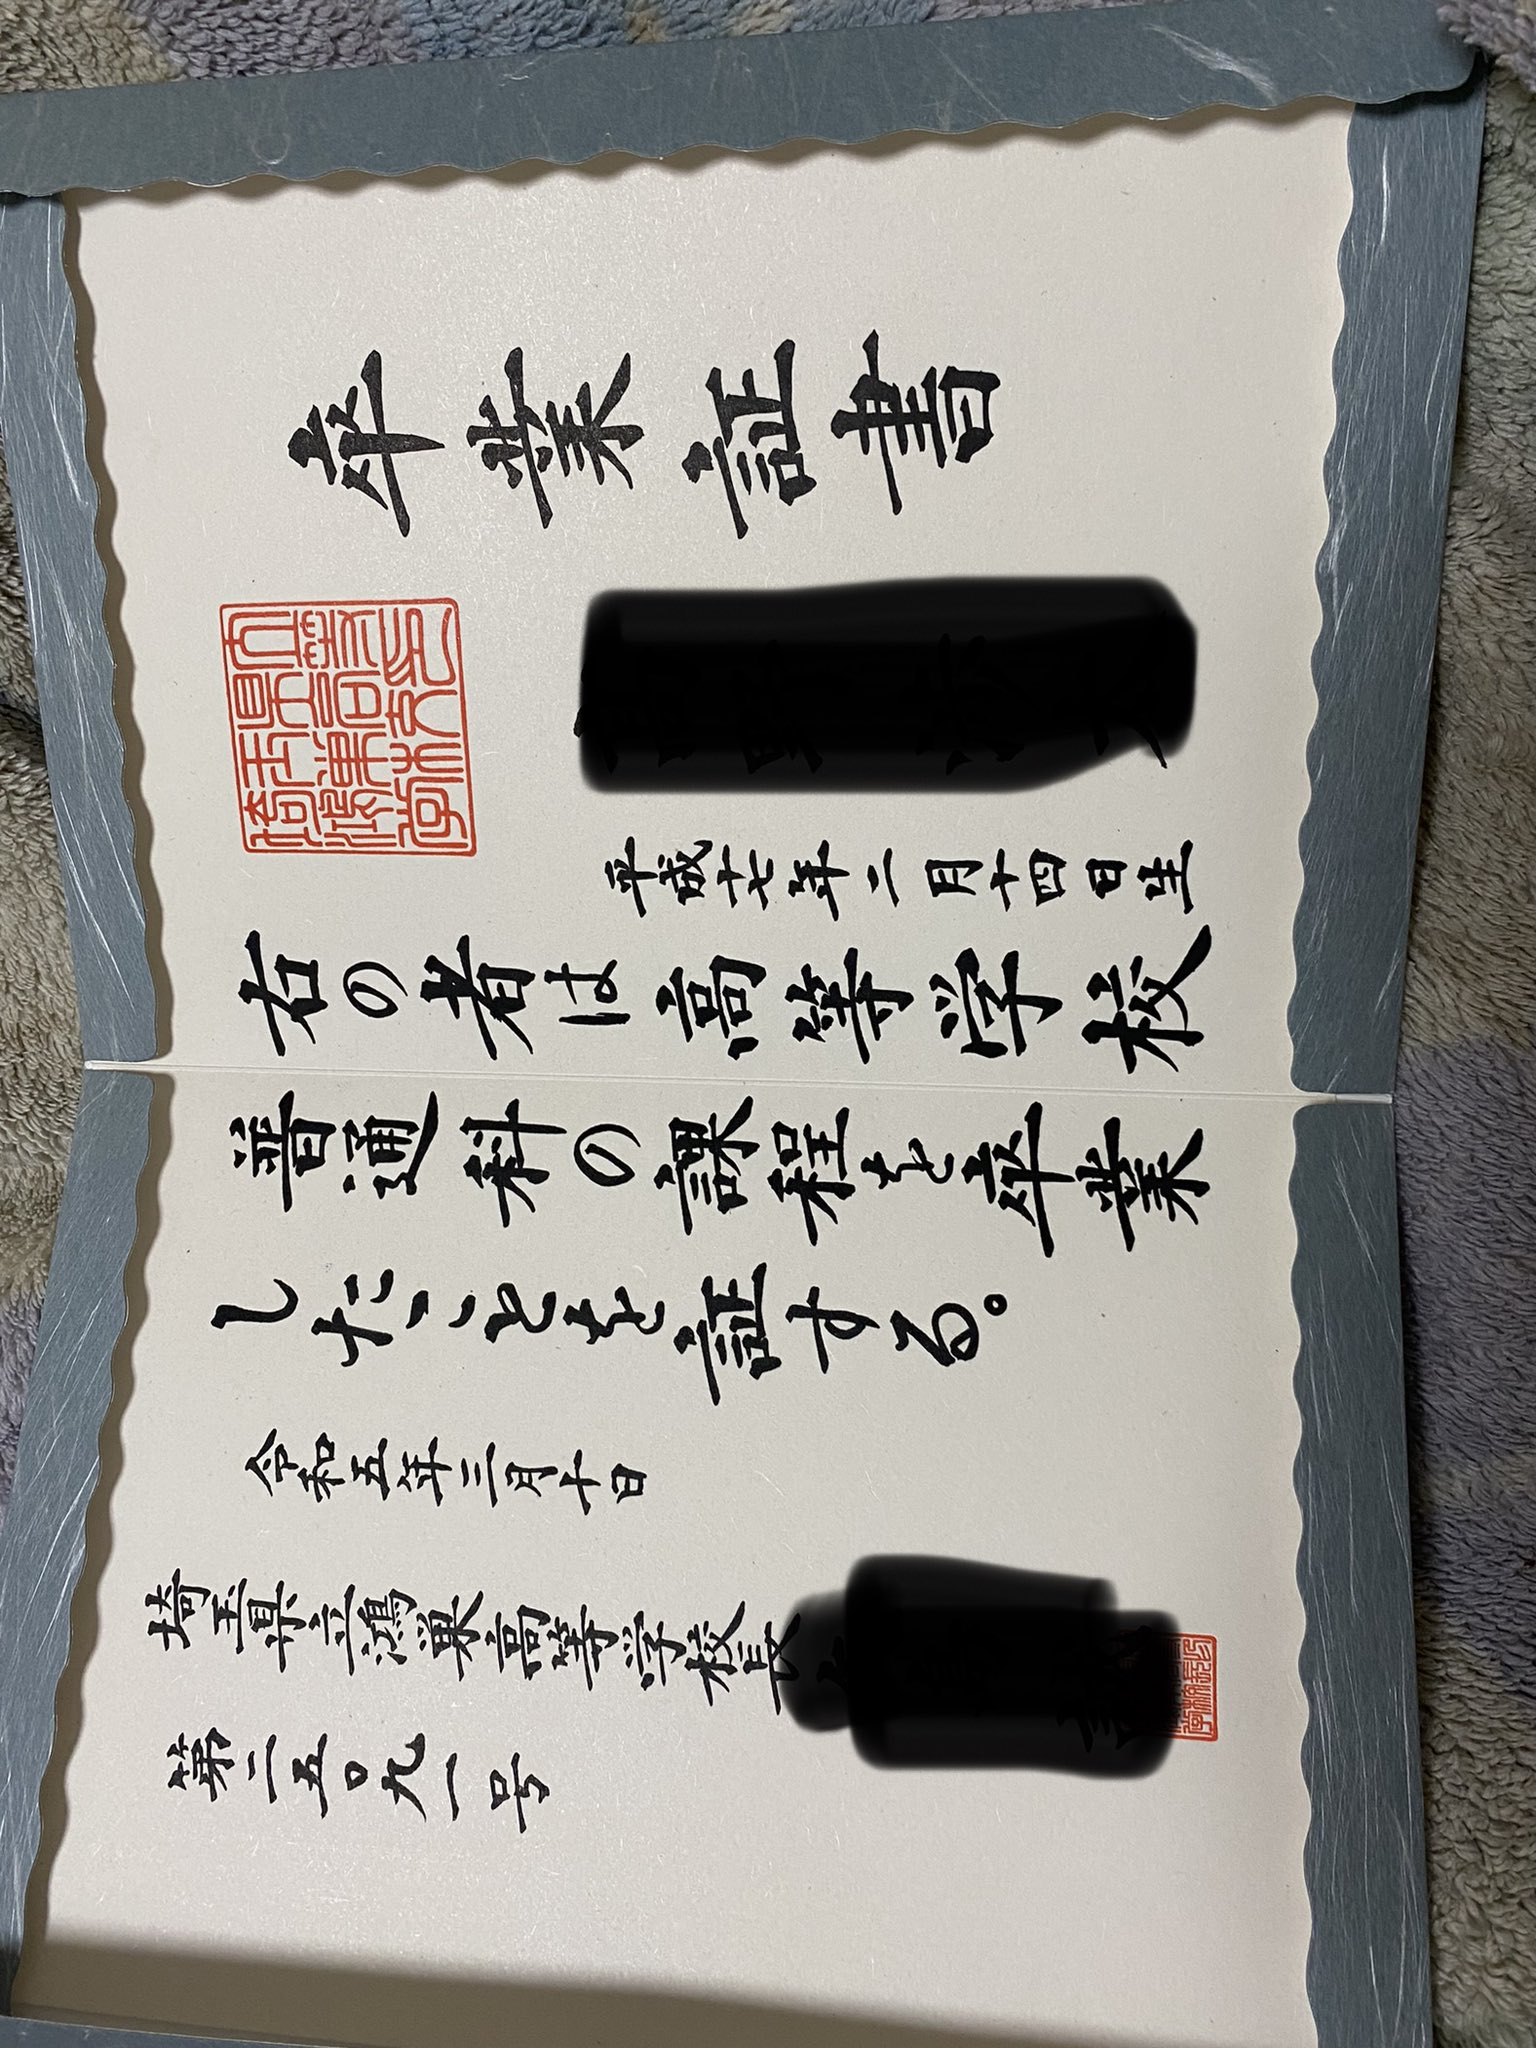 卒業証書
平成十七年二月十四日生
右の者は高等学校
普通科の課程を卒業
したことを証する。
令和五年三月十日
埼玉県立鴻巣高等学校長
第二五〇九一号